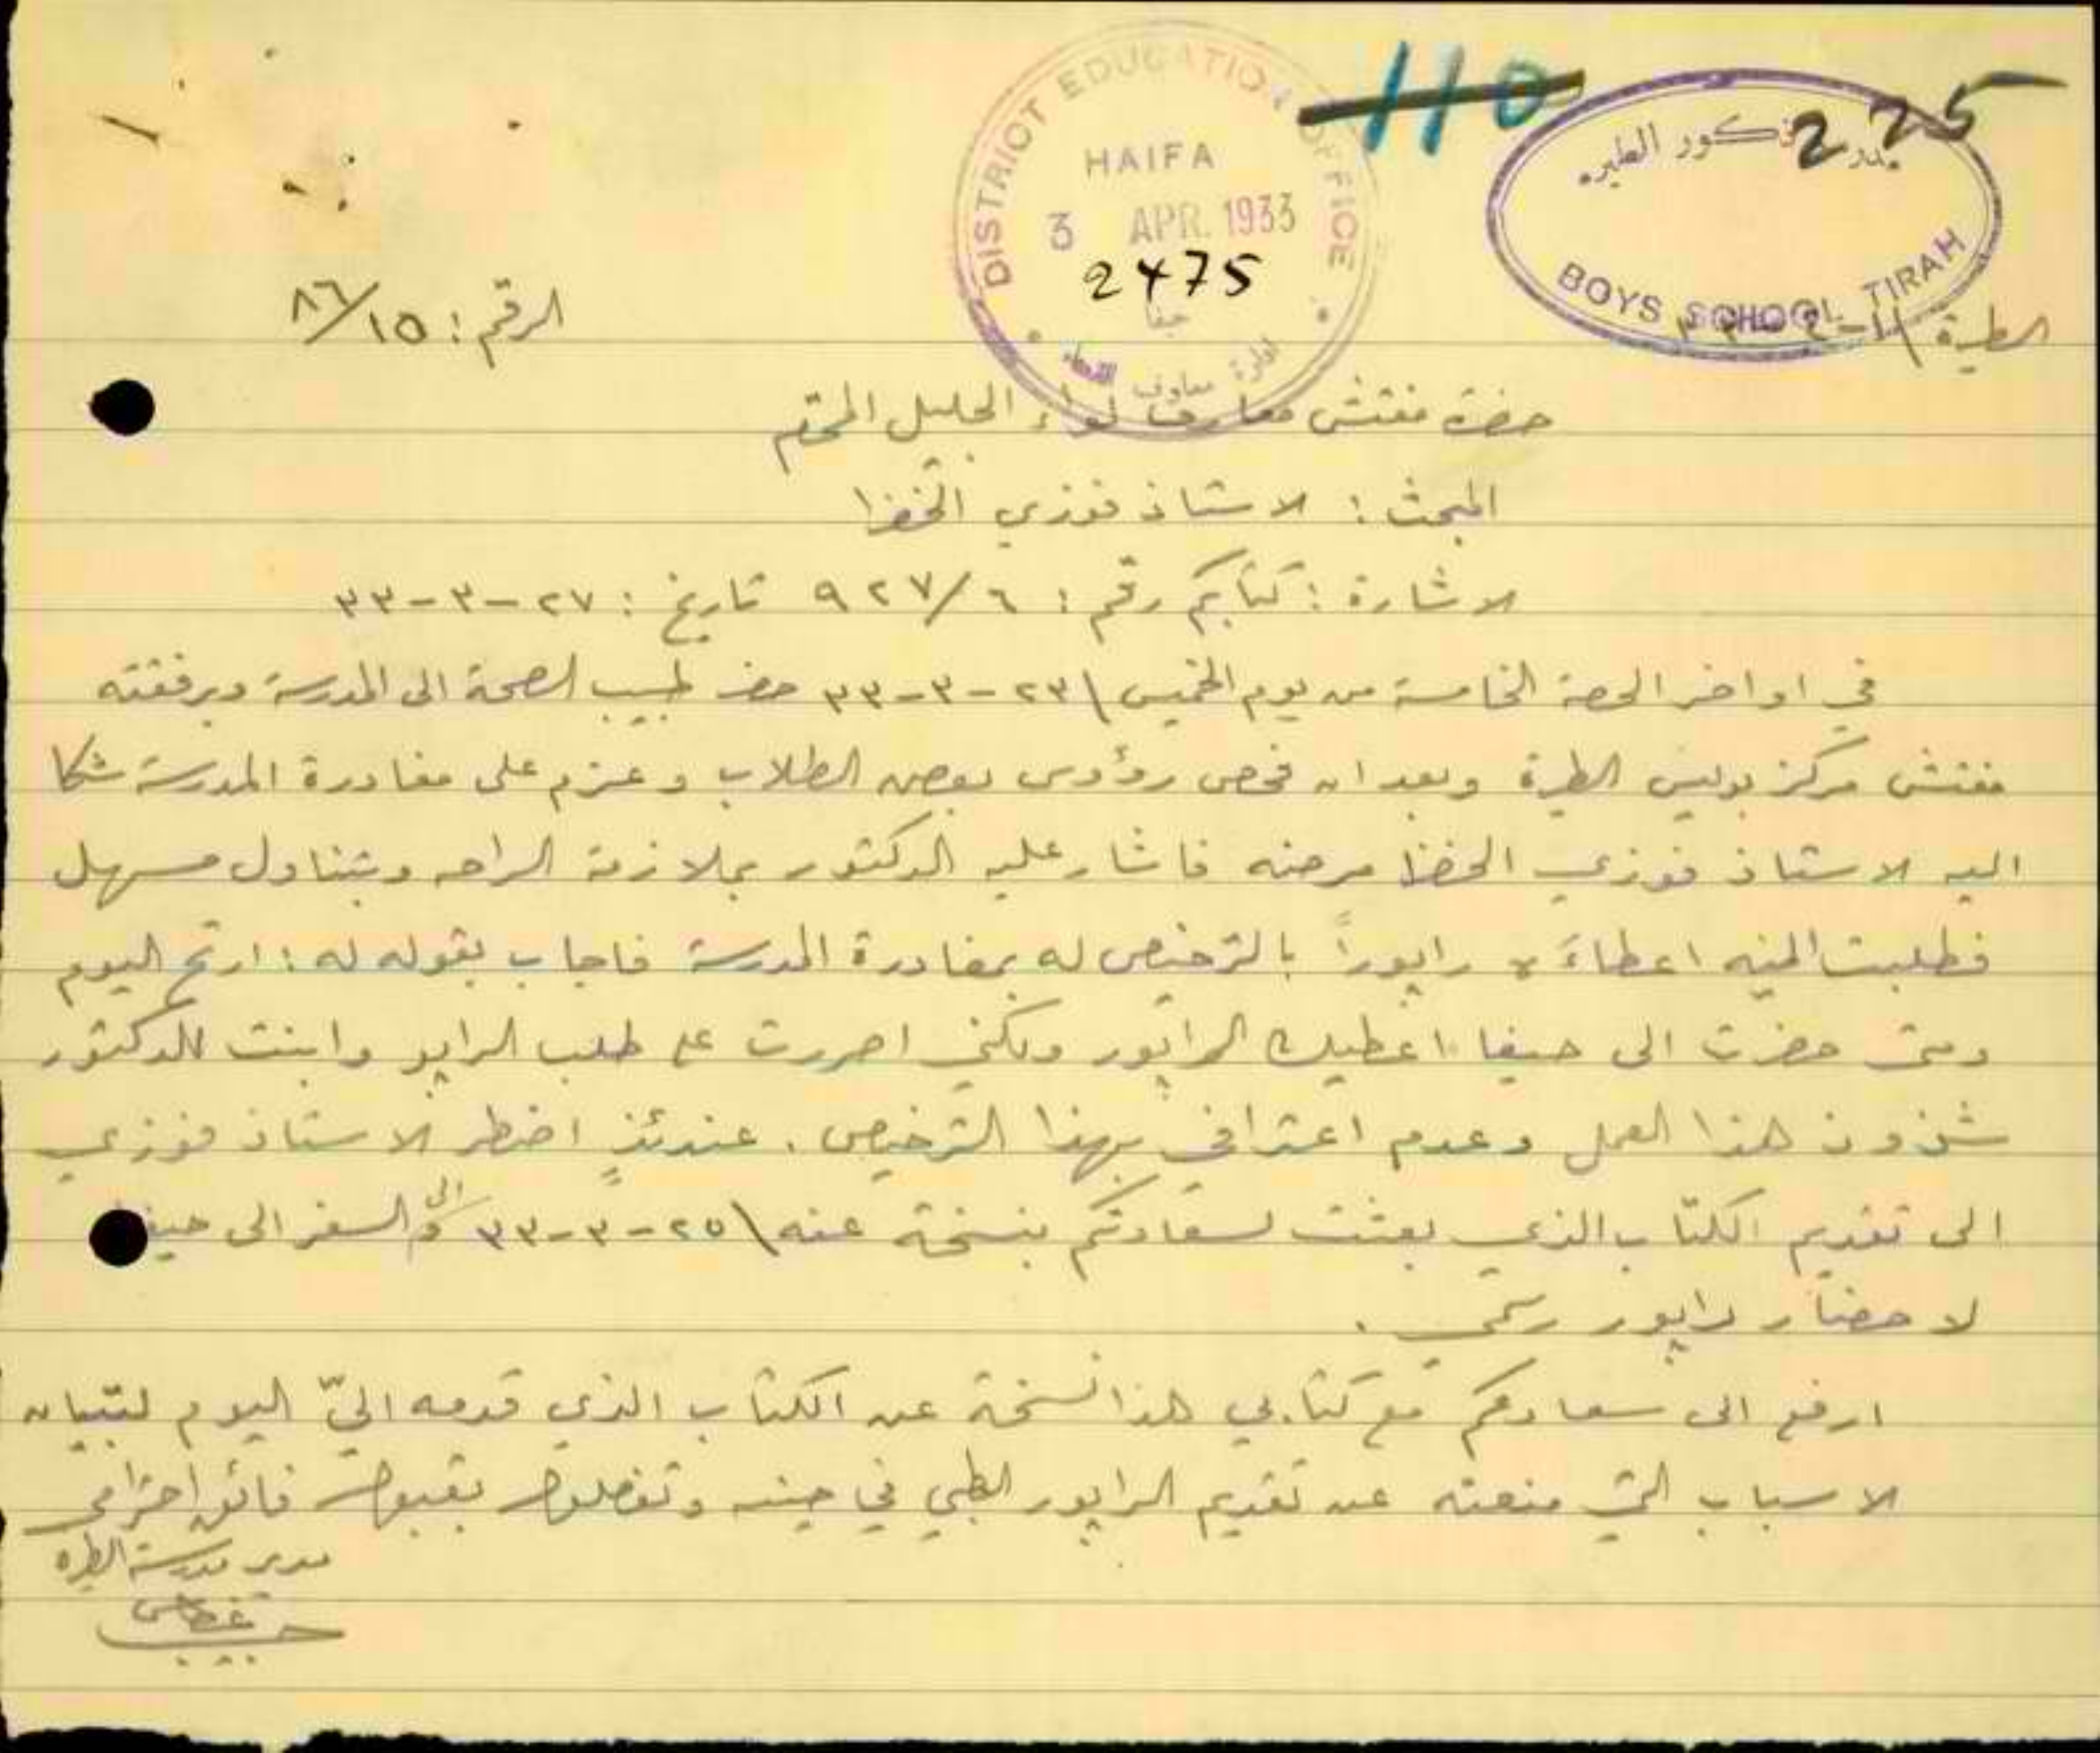 110
225
DISTRICT EDUCATION OFFICE
HAIFA
3 APR. 1933
2475
حيفا
ادارة معارف
ذكور الطيره
BOYS SCHOOL TIRAH
الطيرة
الرقم : ٨٦/١٥
حضرة مفتش معارف لواء الجليل المحترم
المبحث : الاستاذ فوزي
الاشارة : كتابكم رقم : ٩٢٧/٦ تاريخ : ٢٧-٣-٣٣
في اواخر الحصة الخامسة من يوم الخميس \ ٢٣-٣-٣٣ حضر طبيب الصحة الى المدرسة وبرفقته
مفتش مركز بوليس الطيرة وبعد ان فحص رؤوس بعض الطلاب وعزم على مغادرة المدرسة شكا
اليه الاستاذ فوزي مرضه فاشار عليه الدكتور بملازمة الراحه وبتناول مسهل
فطلبت اعطاءه راپوراً بالترخيص له بمغادرة المدرسة فاجاب بقوله له : ارتح اليوم
ومتى حضرت الى حيفا اعطيك الراپور ولكني اصررت على طلب الراپور وابنت للدكتور
شذوذ هذا العمل وعدم اعترافي بهذا الترخيص . عندئذٍ اضطر الاستاذ فوزي
الى تقديم الكتاب الذي بعثت لسعادتكم بنسخة عنه \ ٢٥-٣-٣٣ والى السفر الى حيفا
لاحضار راپور رسمي .
ارفع الى سعادتكم مع كتابي هذا نسخة عن الكتاب الذي قدمه اليّ اليوم لتبيان
الاسباب التي منعته عن تقديم الراپور الطبي في حينه وتفضلوا بقبول فائق احترامي
مدير مدرسة الطيره
حبيب